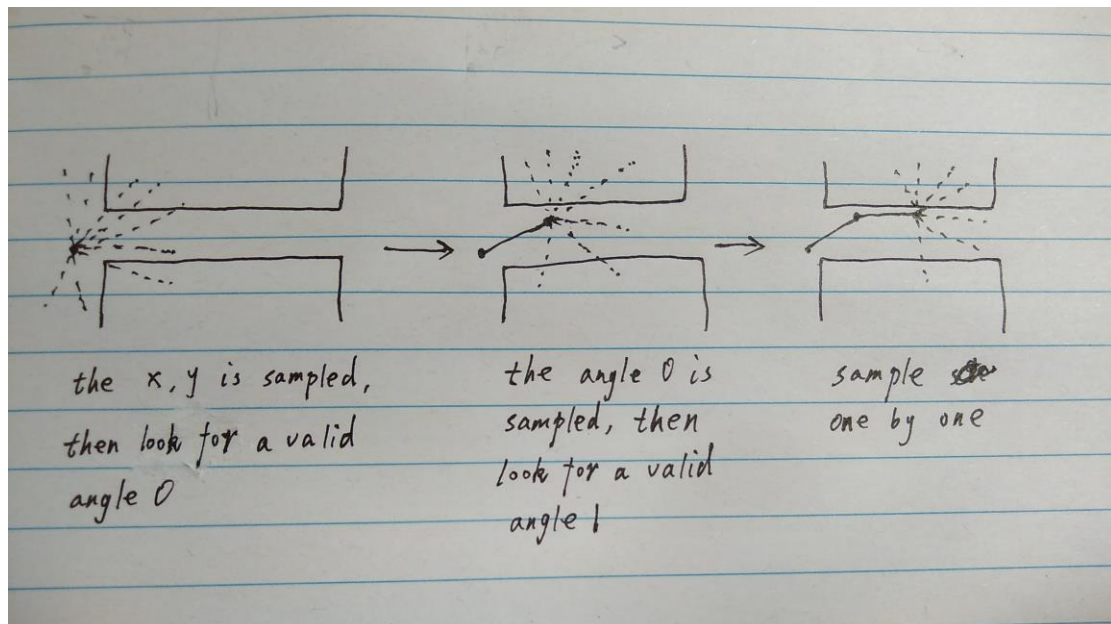 the x, y is sampled,
then look for a valid
angle 0
the angle 0 is
sampled, then
look for a valid
angle 1
sample
one by one